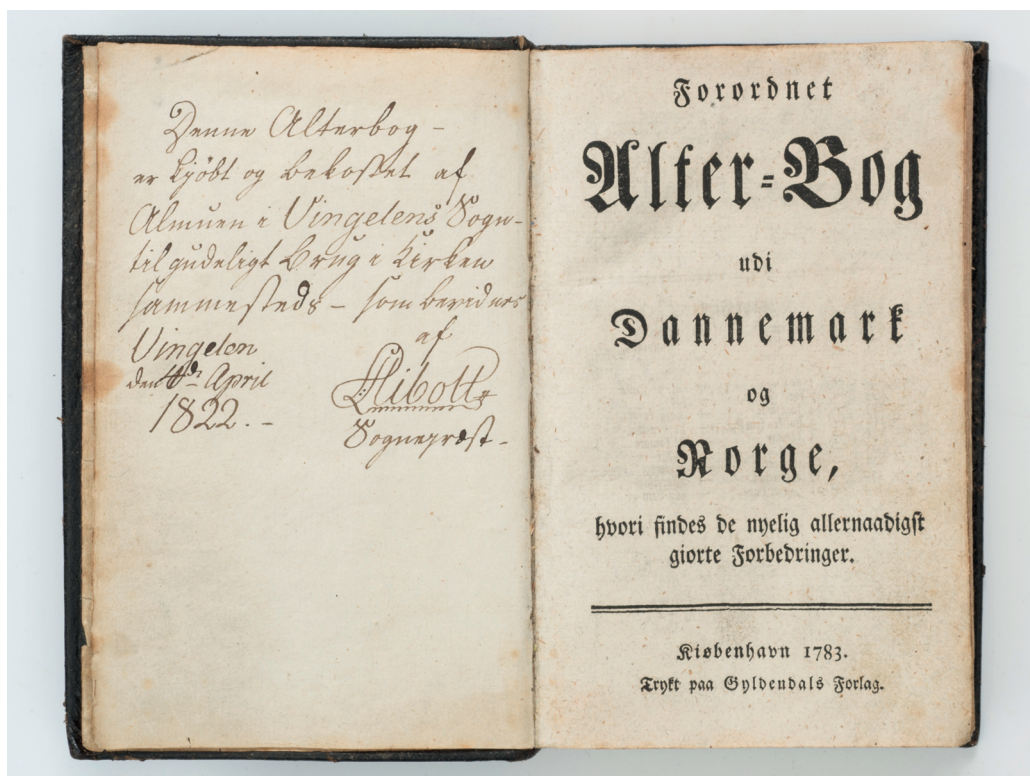 Denne Alterbog –
er kjöbt og bekostet af
Almuen i Vingelens Sogn –
til gudeligt Brug i Kirken
sammesteds – som bevidnes
af
Vingelen
den 4de April
1822. –
Sognepræst –
Forordnet
Alter-Bog
udi
Dannemark
og
Norge,
hvori findes de nyelig allernaadigst
giorte Forbedringer.
Kiøbenhavn 1783.
Trykt paa Gyldendals Forlag.